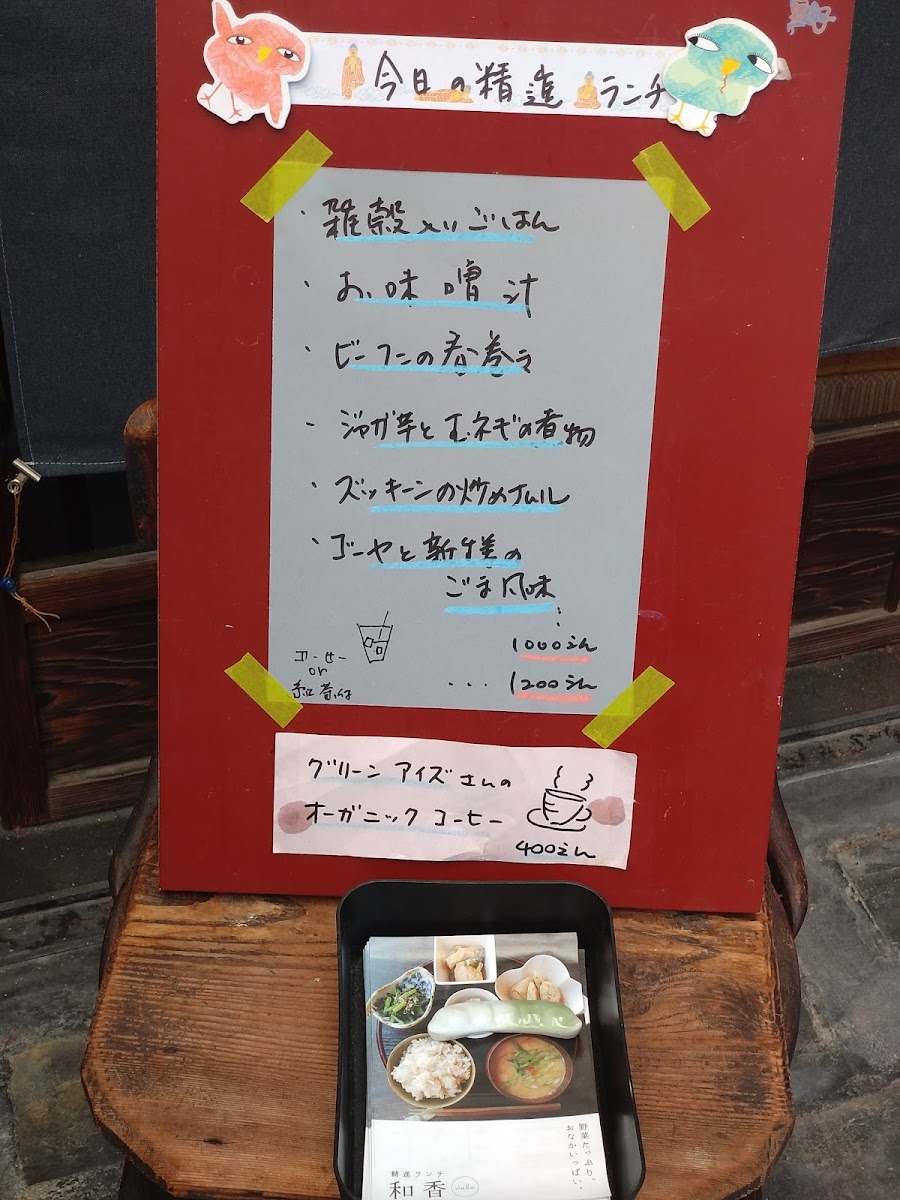 今日の精進ランチ
・雑穀入りごはん
・お味噌汁
・ビーフンの春巻き
・ジャガ芋と玉ネギの煮物
・ズッキーニの炒めナムル
・ゴーヤと新生姜の
ごま風味
1000えん
コーヒー
or
和茶付
... 1200えん
グリーン アイズさんの
オーガニック コーヒー
400えん
野菜たっぷり。
おなかいっぱい。
精進ランチ
和香